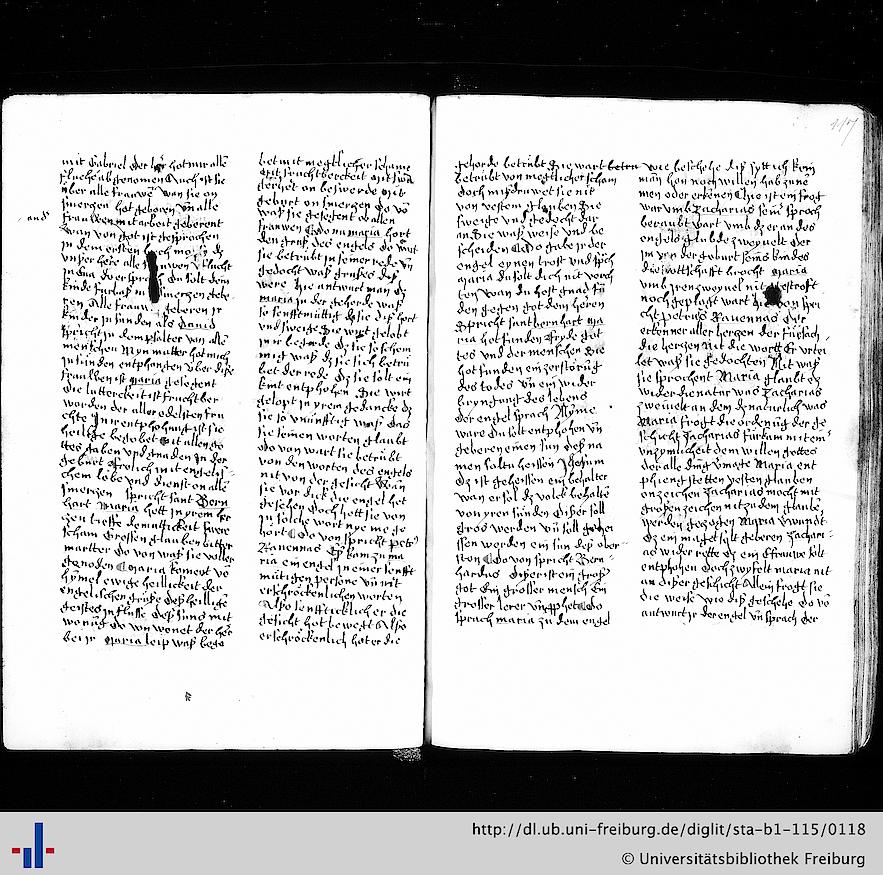 mit Gabriel der her hot mir alle
fluche abgenomen Auch ist sie
über alle frauwen wan sie on
smerzen hot geboren vn̄ alle
and
frauwen mit arbeit geberent
wan von got ist gesprochen
zu dem ersten
vnser here alle
kinder zu sünden als Dauid
spricht in dem psalter wan alle
menschen Myn mutter hot mich
in sünden entphangen über diße
frauwen ist maria gesegent
die lutterckeit ist fruchtber
worden der aller edelsten fru
chte In ir entphohung ist sie
heillige begobet mit allen go
ttes gaben vnd gnaden In der
geburt frolich mit engelis-
chem lobe vnd dienst on alle
smerzen spricht sant Bern
hart Maria hett in yrem her
zen tieffe demuttickeit swere
scham Grossen glauben bitter
martter do von waß sie voller
genoden Maria koment vō
hymel ewige heillickeit der
engelischen grüße deß heillige
geistes influsse deß suns mit
wonūg do von wonet der her
bei ir Maria leip waß bege
bet mit megtlicher schame
mit fruchtberckeit mit swā
gerheit on beswerde mit
geburt on smerzen Do vō
waß sie gesegent ob allen
frauwen Do nu maria hort
den gruß des engels do wart
sie betrübt in seiner rede vn̄
gedocht waß grußes diß
were Hie antwart man dz
maria zu der gehorde waß
so senfftmüttig dz sie diß hort
vnd sweige Sie wart gelobt
in ir begirde dz sie so schem
mig waß dz sie sich betrü
bet der rede dz sie solt ein
kint entphohen Sie wirt
gelopt in yren gedancke dz
sie so vnnfftig waß das
sie seinen worten glaubt
do von wart sie betrübt
von den worten des engels
nit von der gesicht Wan
sie vor dick die engel het
gesehen doch hett sie von
in solche wort nye me ge
hort Do von spricht petr9
Rauennas Eß kam zu ma
ria ein engel in einer senfft
mütigen persone vn̄ mit
erschröckenlichen worten
Also senffticklich er die
gesicht hot bewegt Also
erschröckenlich hot er die
117
gehorde betrübt Sie wart betru
betrübt von megtlicher scham
doch myßtruwet sie nit
von vestem glauben Sie
sweige vnd gedocht dar
an Sie waß weise vnd be
scheiden Do gabe ir der
engel eynen trost vnd sprch
maria du solt dich nit vorch
ten wan du host gnad fū
den gegen got dem heren
Spricht sant bernhart ma
ria hot funden fryde got
tes vnd der menschen Sie
hot funden ein zerstorūg
des todes vn̄ ein wider
bryngung des lebens
der engel sprach Nyme
ware du solt entphohen vn̄
geberen einen sun deß na
men saltu heissen Jhesum
dz ist geheissen ein behalter
wan er sol dz volck behalte
von yren sünden Dißer soll
gros werden vn̄ soll geher
ssen worden ein sun deß ober
sten Do von spricht Bern-
hardus Dißer ist ein groß
got Ein grosser mensch Ein
grosser lerer vn̄ ppheta Do
sprach maria zu dem engel
wie beschehe diß sytt ich kein
man hon noch willen hab zu ne
men oder erkenen Hie ist ein frog
war vmb Zacharias seiner sproch
beraubt wart vmb dz er an des
engels glubde zweyuelt der
im von der geburt seins kindes
die bottschafft brocht Maria
vmb iren zweyuel nit gestroft
noch geplagt wart Hie von spri
cht petrus Rauennas Der
erkenner aller herzen der fursach-
die herzen nit die wortt Er vrtei
let waß sie gedochten Nit waß
sie sprochent Maria glaubt dz
wider die natur was Zacharias
zweiuelt an dem dz naturlich was
Maria frogt die ordenūg der ge
schicht Zacharias fürkam mit em
vnzymlicheit dem willen gottes
der alle ding vermage Maria ent
phieng stetten vesten glauben
on zeichen Zacharias mocht mit
großen zeichen nit zu dem glaube
werden gezogen Maria v'wundt
dz ein maget solt geberen Zachari-
as wider rette dz ein Efrauwe solt
entphohen doch zwyfelt maria nit
an dißer geschicht Allein frogt sie
die weiße wie diß geschehe Do vō
antwurt ir der engel vn̄ sprach Der
http://dl.ub.uni-freiburg.de/diglit/sta-b1-115/0118
© Universitätsbibliothek Freiburg